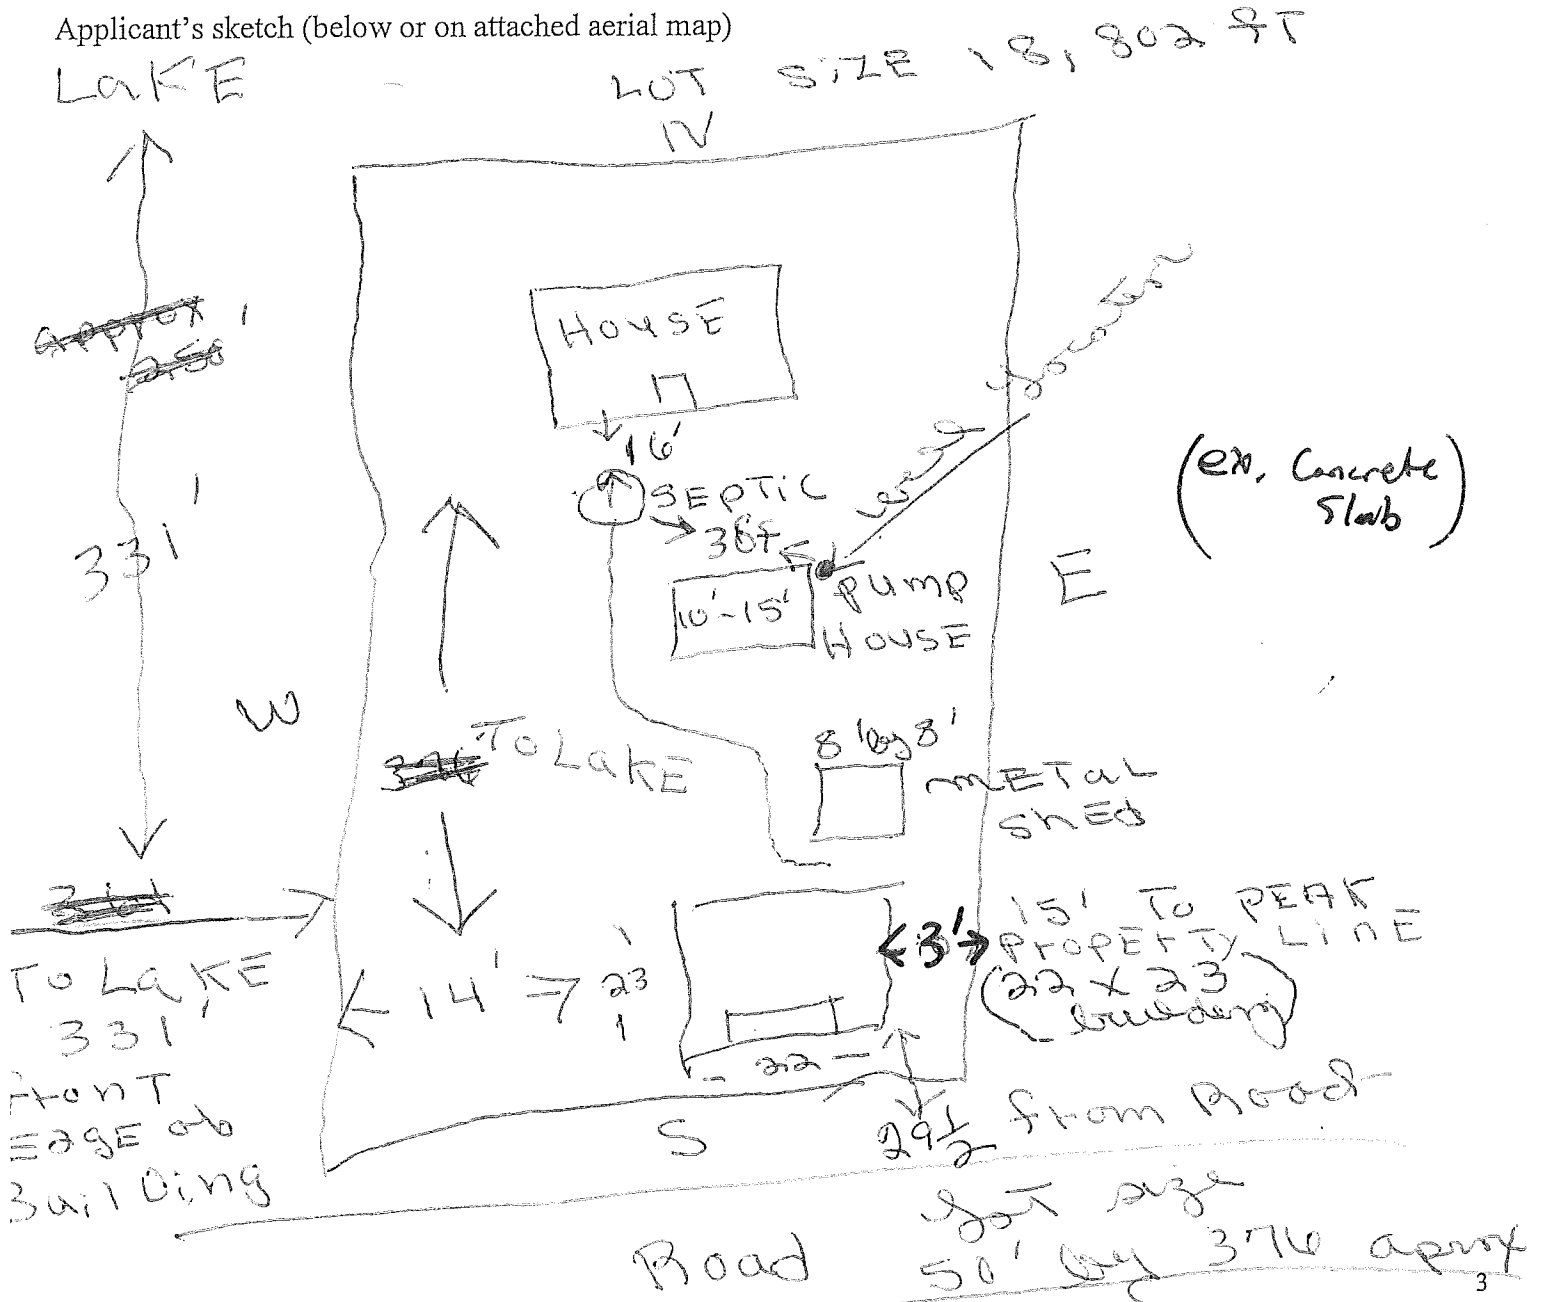 Applicant's sketch (below or on attached aerial map)
LOT SIZE 18,802 FT
LAKE
N
approx
250'
HOUSE
16'
SEPTIC
well location
(ex. Concrete
Slab)
331'
10'-15'
PUMP
HOUSE
E
W
376 TO LAKE
8' by 8'
METAL
SHED
TO LAKE
331'
FRONT
EDGE OF
Building
14'
23'
3'
15' TO PEAK
PROPERTY LINE
(22 x 23
building)
- 22 -
29 1/2 from Road
S
Road
Lot size
50' by 376 aprox
3